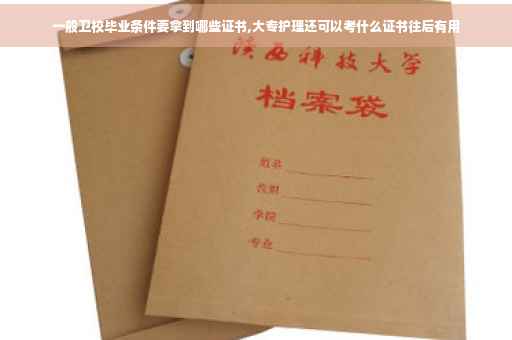 一般卫校毕业条件要拿到哪些证书,大专护理还可以考什么证书往后有用
陕西科技大学
档案袋
姓名
学院
专业